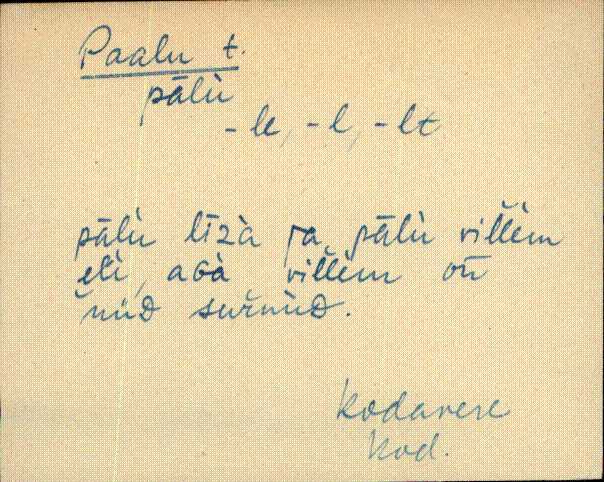 Paalu t.
pālù
-le, -l, -lt
pālù līzà ja pālù villem
eli, aGà villem oň
niiD surnuD.
Kodavere
Kod.